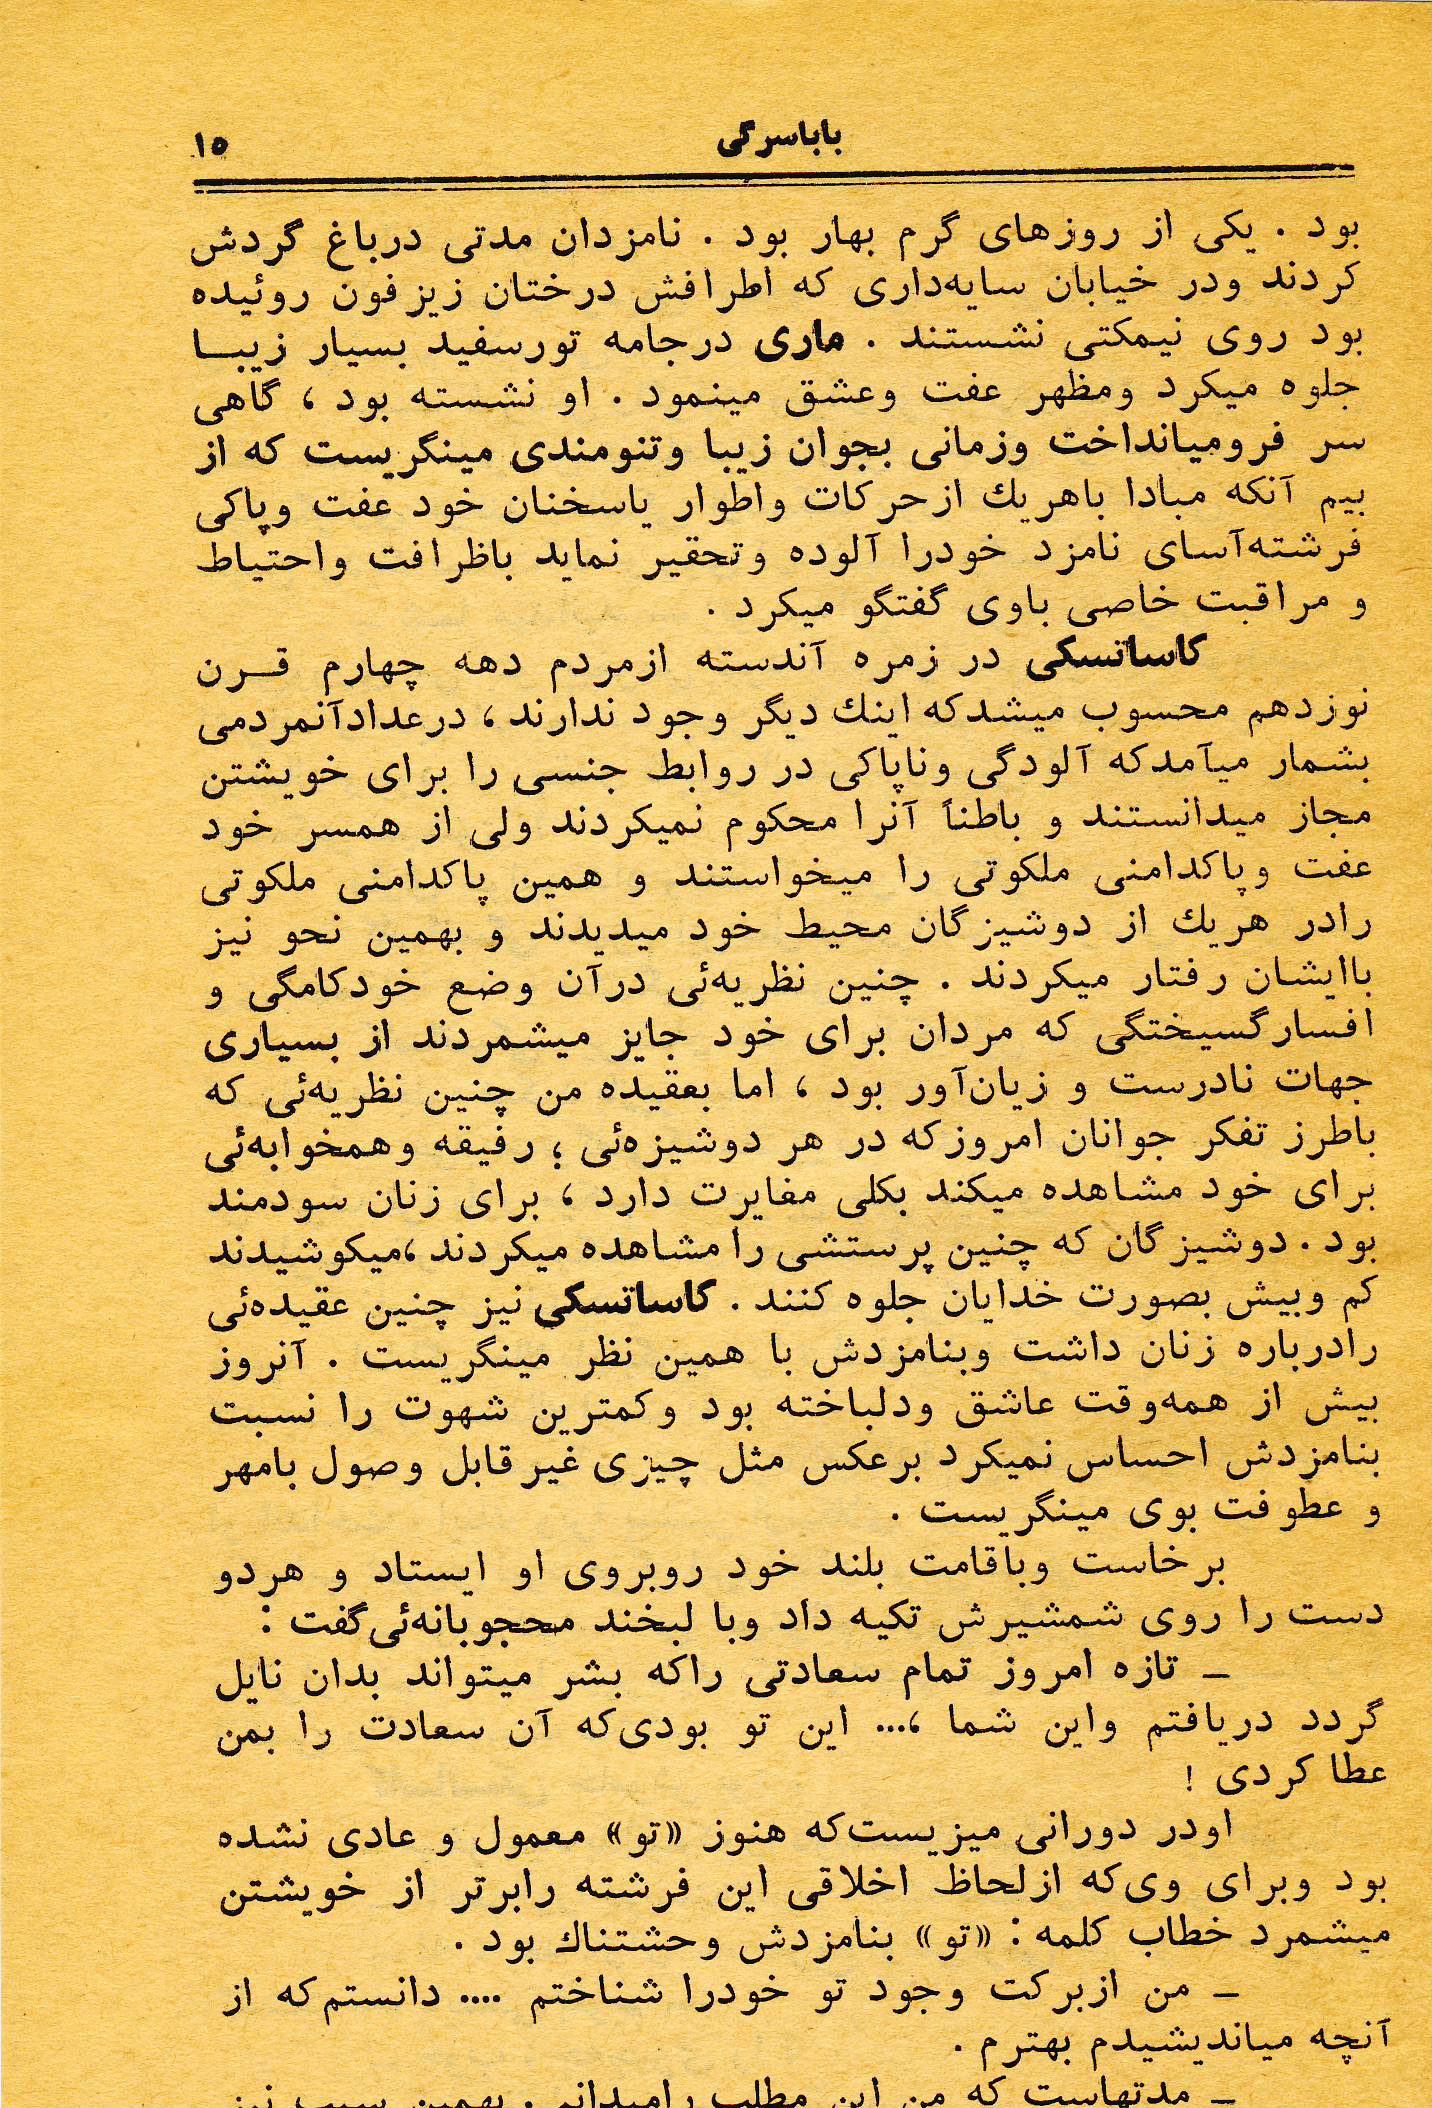 باباسرگی
۱۵
بود . یکی از روزهای گرم بهار بود . نامزدان مدتی درباغ گردش
کردند ودر خیابان سایه‌داری که اطرافش درختان زیزفون روئیده
بود روی نیمکتی نشستند . ماری درجامه تورسفید بسیار زیبــا
جلوه میکرد ومظهر عفت وعشق مینمود . او نشسته بود ، گاهی
سر فرومیانداخت وزمانی بجوان زیبا وتنومندی مینگریست که از
بیم آنکه مبادا باهریك ازحرکات واطوار یاسخنان خود عفت وپاکی
فرشته‌آسای نامزد خودرا آلوده وتحقیر نماید باظرافت واحتیاط
و مراقبت خاصی باوی گفتگو میکرد .
کاساتسکی در زمره آندسته ازمردم دهه چهارم قــرن
نوزدهم محسوب میشدکه اینك دیگر وجود ندارند ، درعدادآنمردمی
بشمار میآمدکه آلودگی وناپاکی در روابط جنسی را برای خویشتن
مجاز میدانستند و باطناً آنرا محکوم نمیکردند ولی از همسر خود
عفت وپاکدامنی ملکوتی را میخواستند و همین پاکدامنی ملکوتی
رادر هریك از دوشیزگان محیط خود میدیدند و بهمین نحو نیز
باایشان رفتار میکردند . چنین نظریه‌ئی درآن وضع خودکامگی و
افسارگسیختگی که مردان برای خود جایز میشمردند از بسیاری
جهات نادرست و زیان‌آور بود ، اما بعقیده من چنین نظریه‌ئی که
باطرز تفکر جوانان امروزکه در هر دوشیزه‌ئی ؛ رفیقه وهمخوابه‌ئی
برای خود مشاهده میکند بکلی مغایرت دارد ، برای زنان سودمند
بود . دوشیزگان که چنین پرستشی را مشاهده میکردند ،میکوشیدند
کم وبیش بصورت خدایان جلوه کنند . کاساتسکی نیز چنین عقیده‌ئی
رادرباره زنان داشت وبنامزدش با همین نظر مینگریست . آنروز
بیش از همه‌وقت عاشق ودلباخته بود وکمترین شهوت را نسبت
بنامزدش احساس نمیکرد برعکس مثل چیزی غیر قابل وصول بامهر
و عطوفت بوی مینگریست .
برخاست وباقامت بلند خود روبروی او ایستاد و هردو
دست را روی شمشیرش تکیه داد وبا لبخند محجوبانه‌ئی‌گفت :
ـ تازه امروز تمام سعادتی راکه بشر میتواند بدان نایل
گردد دریافتم واین شما ،... این تو بودی‌که آن سعادت را بمن
عطا کردی !
اودر دورانی میزیست‌که هنوز «تو» معمول و عادی نشده
بود وبرای وی‌که ازلحاظ اخلاقی این فرشته رابرتر از خویشتن
میشمرد خطاب کلمه : «تو» بنامزدش وحشتناك بود .
ـ من ازبرکت وجود تو خودرا شناختم .... دانستم‌که از
آنچه میاندیشیدم بهترم .
ـ مدتهاست که من این مطلب رامیدانم . بهمین سبب نیز